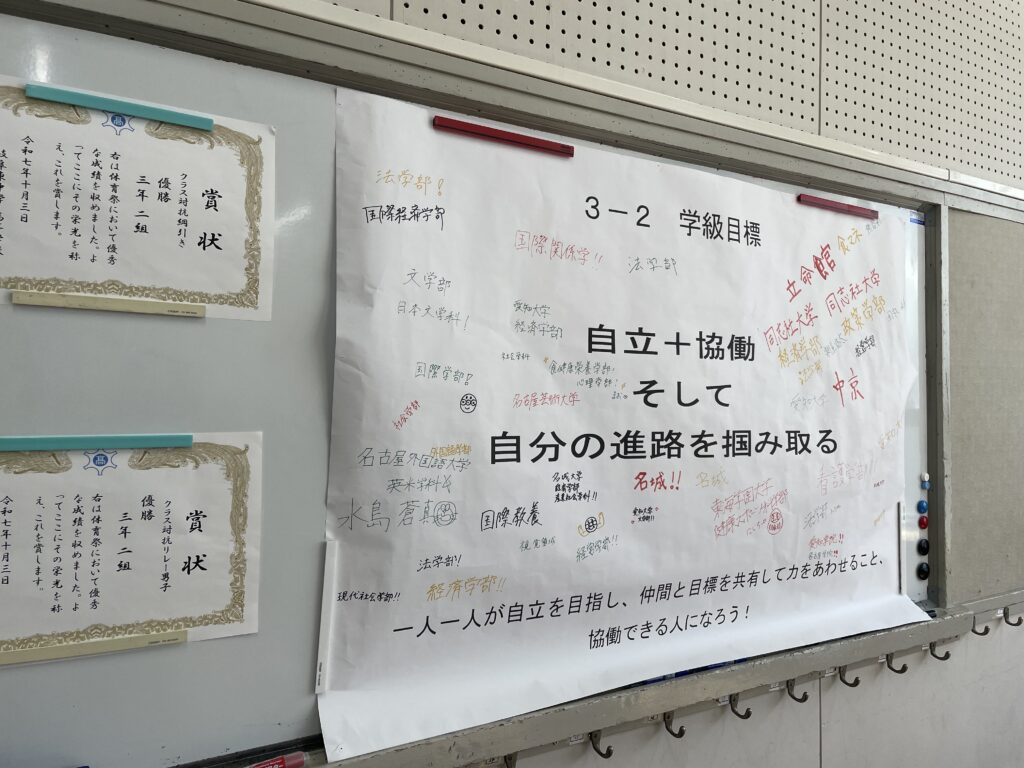 賞状
クラス対抗綱引き
優勝
三年二組
右は体育祭において優秀
な成績を収めました。よ
ってここにその栄光を称
え、これを賞します。
令和七年十月三日
賞状
クラス対抗リレー男子
優勝
三年二組
右は体育祭において優秀
な成績を収めました。よ
ってここにその栄光を称
え、これを賞します。
令和七年十月三日
3－2 学級目標
法学部!
国際経済学部
国際関係学!!
法学部
文学部
日本文学科!
愛知大学
経済学部
立命館
同志社大学
同志社大学
政策学部
経済学部
自立＋協働
社会学科
食健康栄養学部!
心理学部!
国際学部?
名古屋芸術大学
そして
愛知大学
中京
社会学部
自分の進路を掴み取る
外国語学部
名古屋外国語大学
英米学科
名城大学
名城!!
名城
看護学部!!
東海学園大学
水島 蒼真
国際教養
愛知大学
法学部!!
経営学部!!
愛知学院!!
現代社会学部!!
経済学部!!
一人一人が自立を目指し、仲間と目標を共有して力をあわせること、
協働できる人になろう！